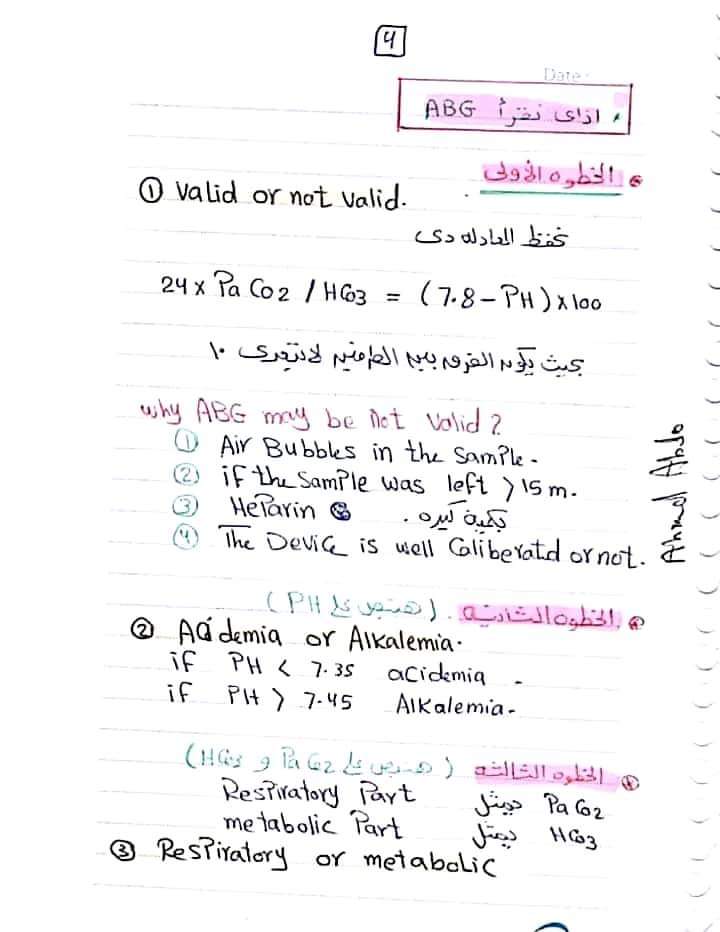 4
Date:
ازاى نقرأ ABG
الخطوه الأولى
① Valid or not valid.
نحفظ المعادله دى
24 x PaCo2 / HCo3 = (7.8 - PH) x 100
بحيث يكون الفرق بين الطرفين لا تتعدى ١٠
why ABG may be Not Valid ?
① Air Bubbles in the Sample.
② if the Sample was left > 15 m.
③ HeParin بكمية كبيره .
④ The Device is well Caliberatd or not.
Ahmed Abdo
الخطوه الثانيه . (هنبص على PH)
② Acidemia or Alkalemia.
if PH < 7.35 acidemia -
if PH > 7.45 Alkalemia -
الخطوه الثالثه (هنبص على PaCo2 و HCo3)
Respiratory Part بيمثل PaCo2
metabolic Part بيمثل HCo3
③ Respiratory or metabolic